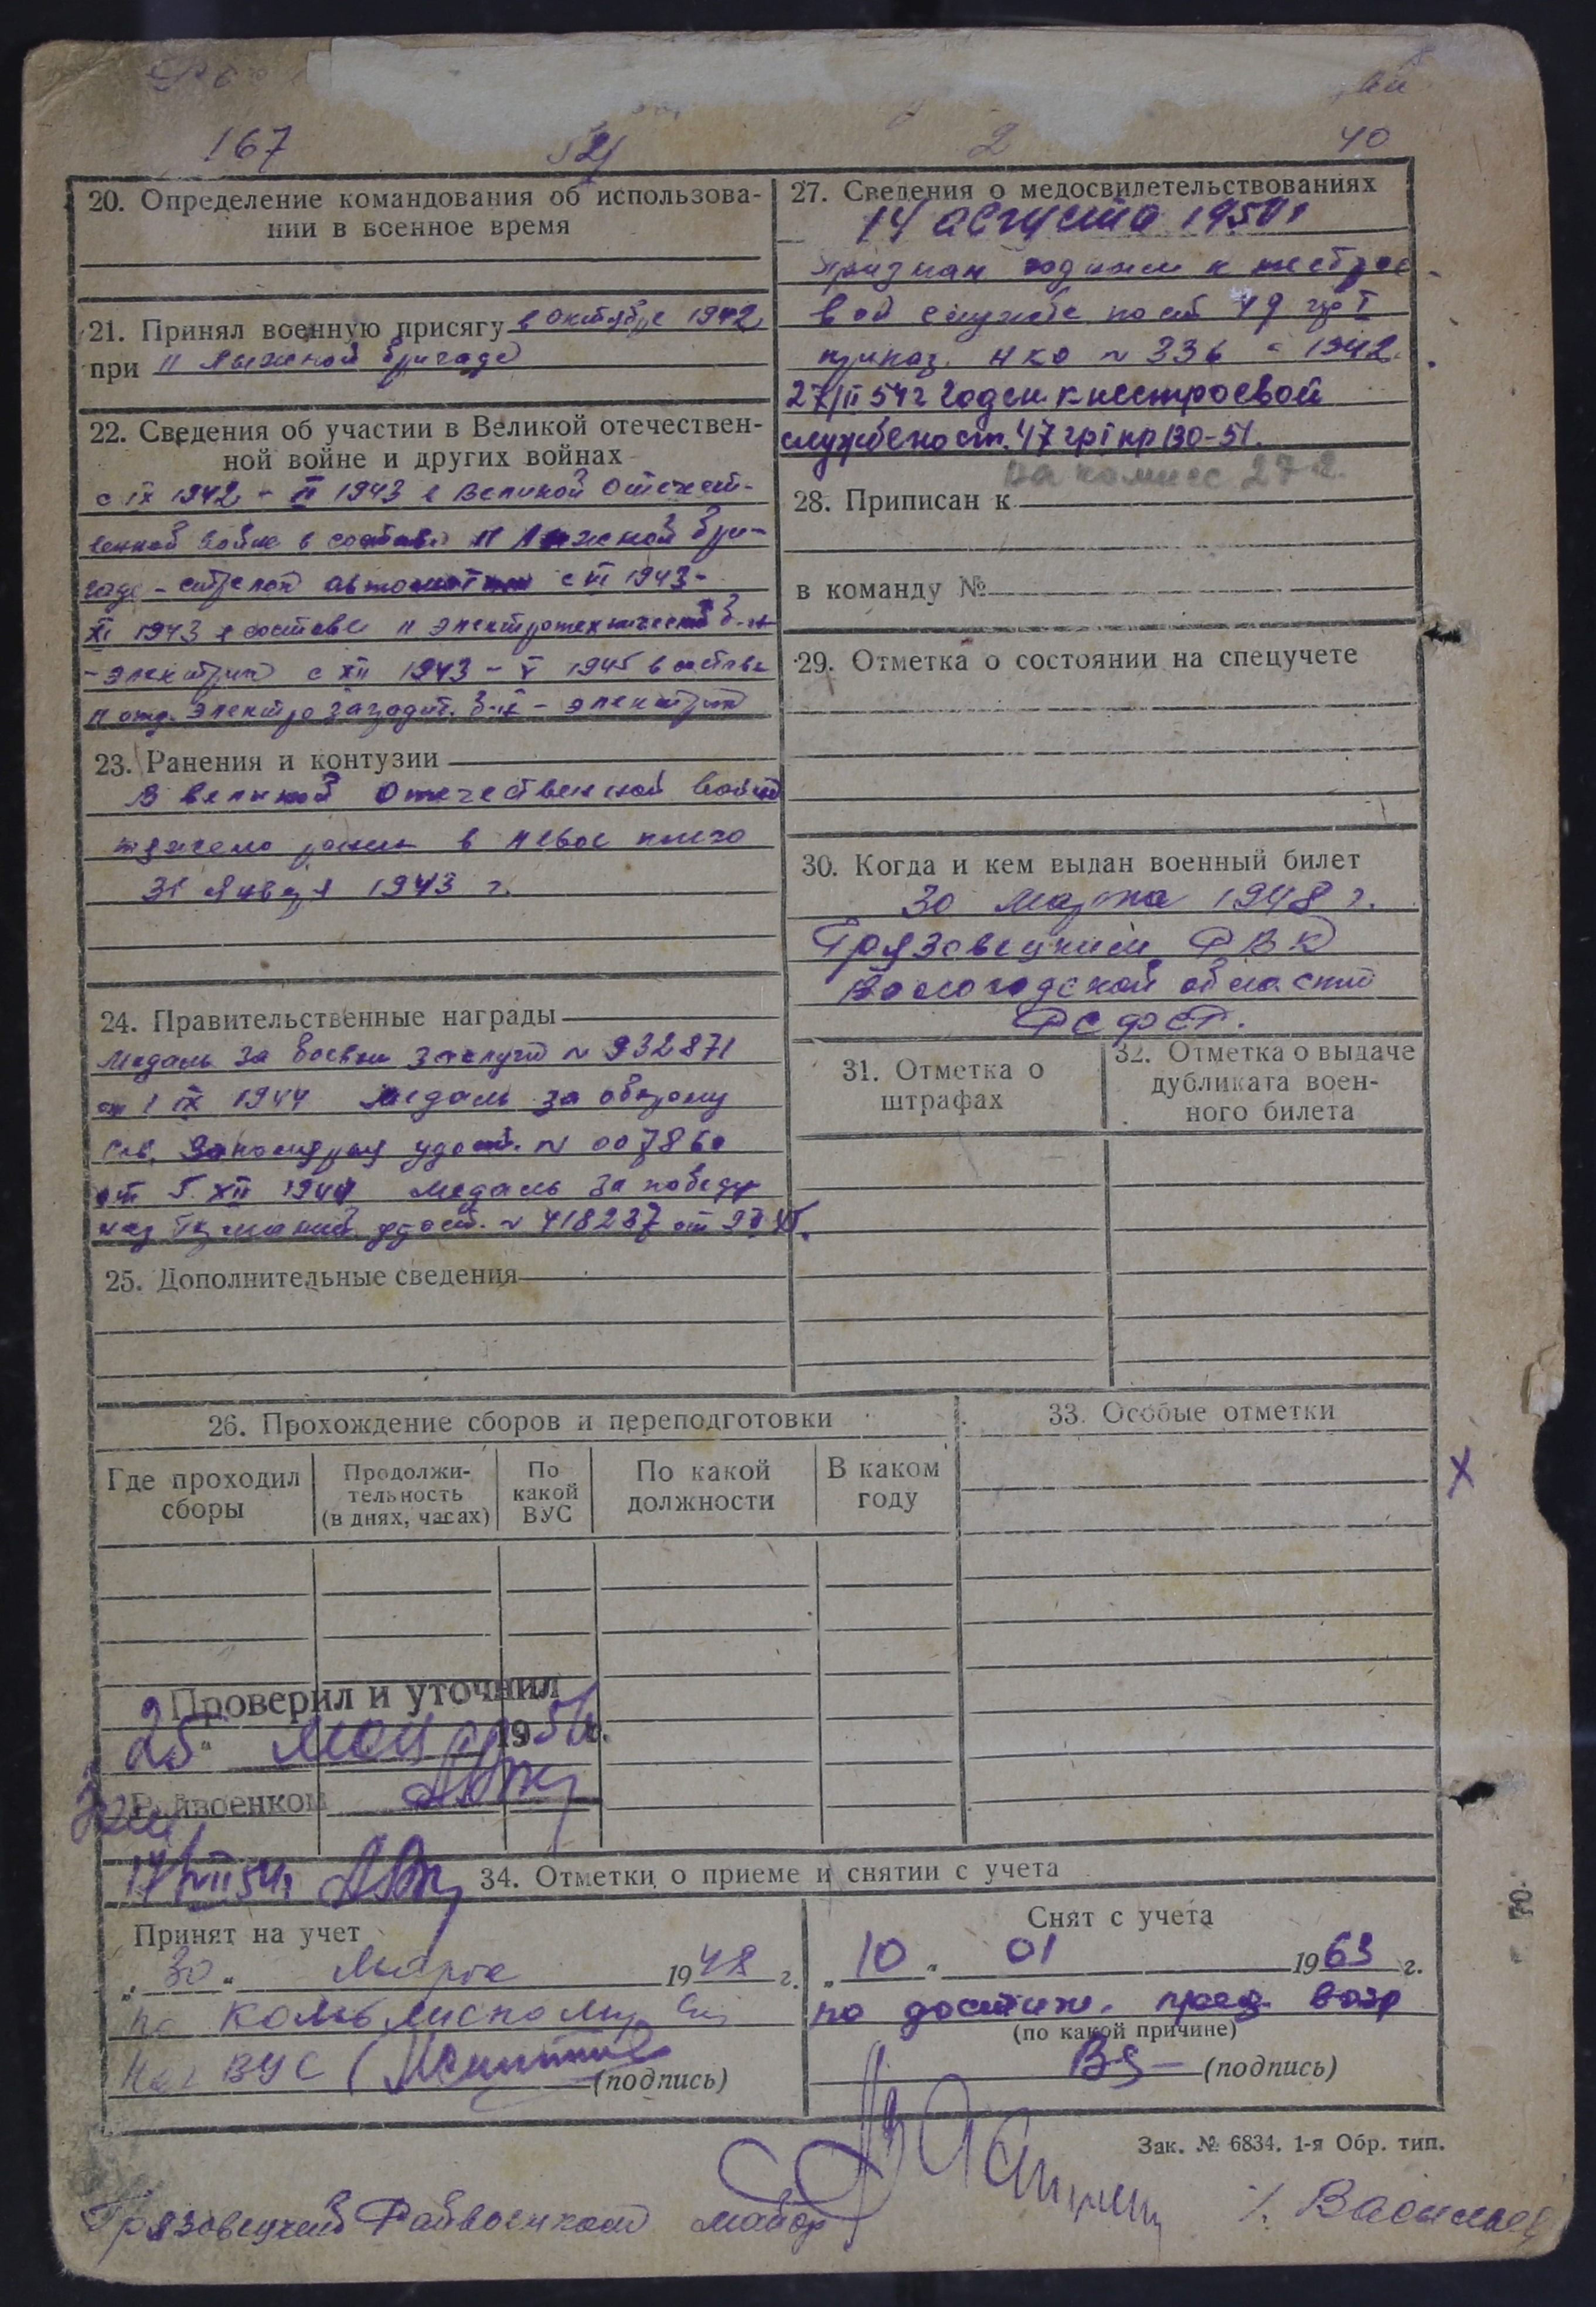 167
2
40
20. Определение командования об использова-
нии в военное время
21. Принял военную присягу в октябре 1942
при 11 лыжной бригаде
22. Сведения об участии в Великой отечествен-
ной войне и других войнах
с IX 1942 - II 1943 в Великой Отечест-
венной войне в составе 11 лыжной бри-
гаде - стрелок автоматчик с VI 1943-
XI 1943 в составе 11 электротехнический б-н
- электрик с XII 1943 - V 1945 в составе
11 отд. электро заградит. б-н - электрик
23. Ранения и контузии
В великой Отечественной войне
тяжело ранен в левое плечо
31 января 1943 г.
24. Правительственные награды
Медаль за боевые заслуги № 932871
от 1 IX 1944 Медаль за оборону
Сов. Заполярья удост. № 007860
от 5. XII 1944 Медаль за победу
над Германией удост. № 418237 от
25. Дополнительные сведения
26. Прохождение сборов и переподготовки
Где проходил
сборы
Продолжи-
тельность
(в днях, часах)
По
какой
ВУС
По какой
должности
В каком
году
Проверил и уточнил
25 мая 1954.
Райвоенком
17/VII 54г
27. Сведения о медосвидетельствованиях
14 августа 1950г
признан годным к нестрое-
вой службе по ст 49 гр I
приказ. НКО № 336 - 1942.
27/II 54г Годен к нестроевой
службе по ст. 47 гр I пр 130-51.
28. Приписан к
в команду №
29. Отметка о состоянии на спецучете
30. Когда и кем выдан военный билет
30 Марта 1948 г.
Грязовецким РВК
Вологодской области
РСФСР.
31. Отметка о
штрафах
32. Отметка о выдаче
дубликата воен-
ного билета
33. Особые отметки
34. Отметки о приеме и снятии с учета
Принят на учет
„30“ Марта 1948 г.
по
Нач ВУС (подпись)
Снят с учета
„10“ 01 1963 г.
по достиж. пред. возр
(по какой причине)
(подпись)
Зак. № 6834. 1-я Обр. тип.
Грязовецкий Райвоенком майор /. Васильев